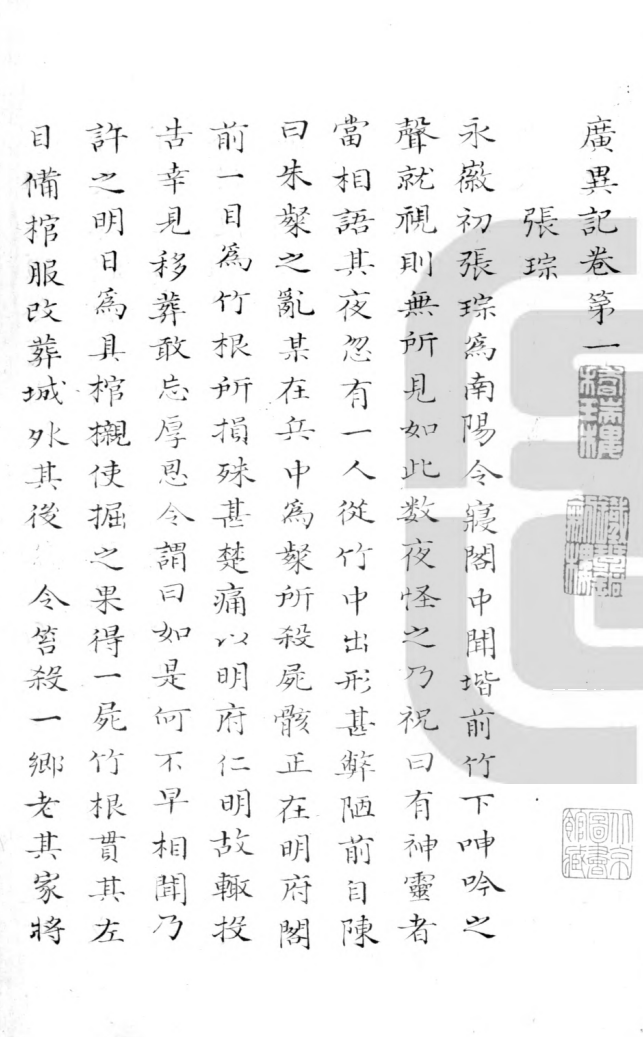 廣異記卷第一
張琮
永徽初張琮爲南陽令寢閣中聞堦前竹下呻吟之
聲就視則無所見如此数夜怪之乃祝曰有神靈者
當相語其夜忽有一人從竹中出形甚弊陋前自陳
曰朱粲之亂某在兵中爲粲所殺屍骸正在明府閣
前一目爲竹根所損殊甚楚痛以明府仁明故輙投
告幸見移葬敢忘厚恩令謂曰如是何不早相聞乃
許之明日爲具棺櫬使掘之果得一屍竹根貫其左
目備棺服改葬城外其後 令笞殺一鄉老其家將